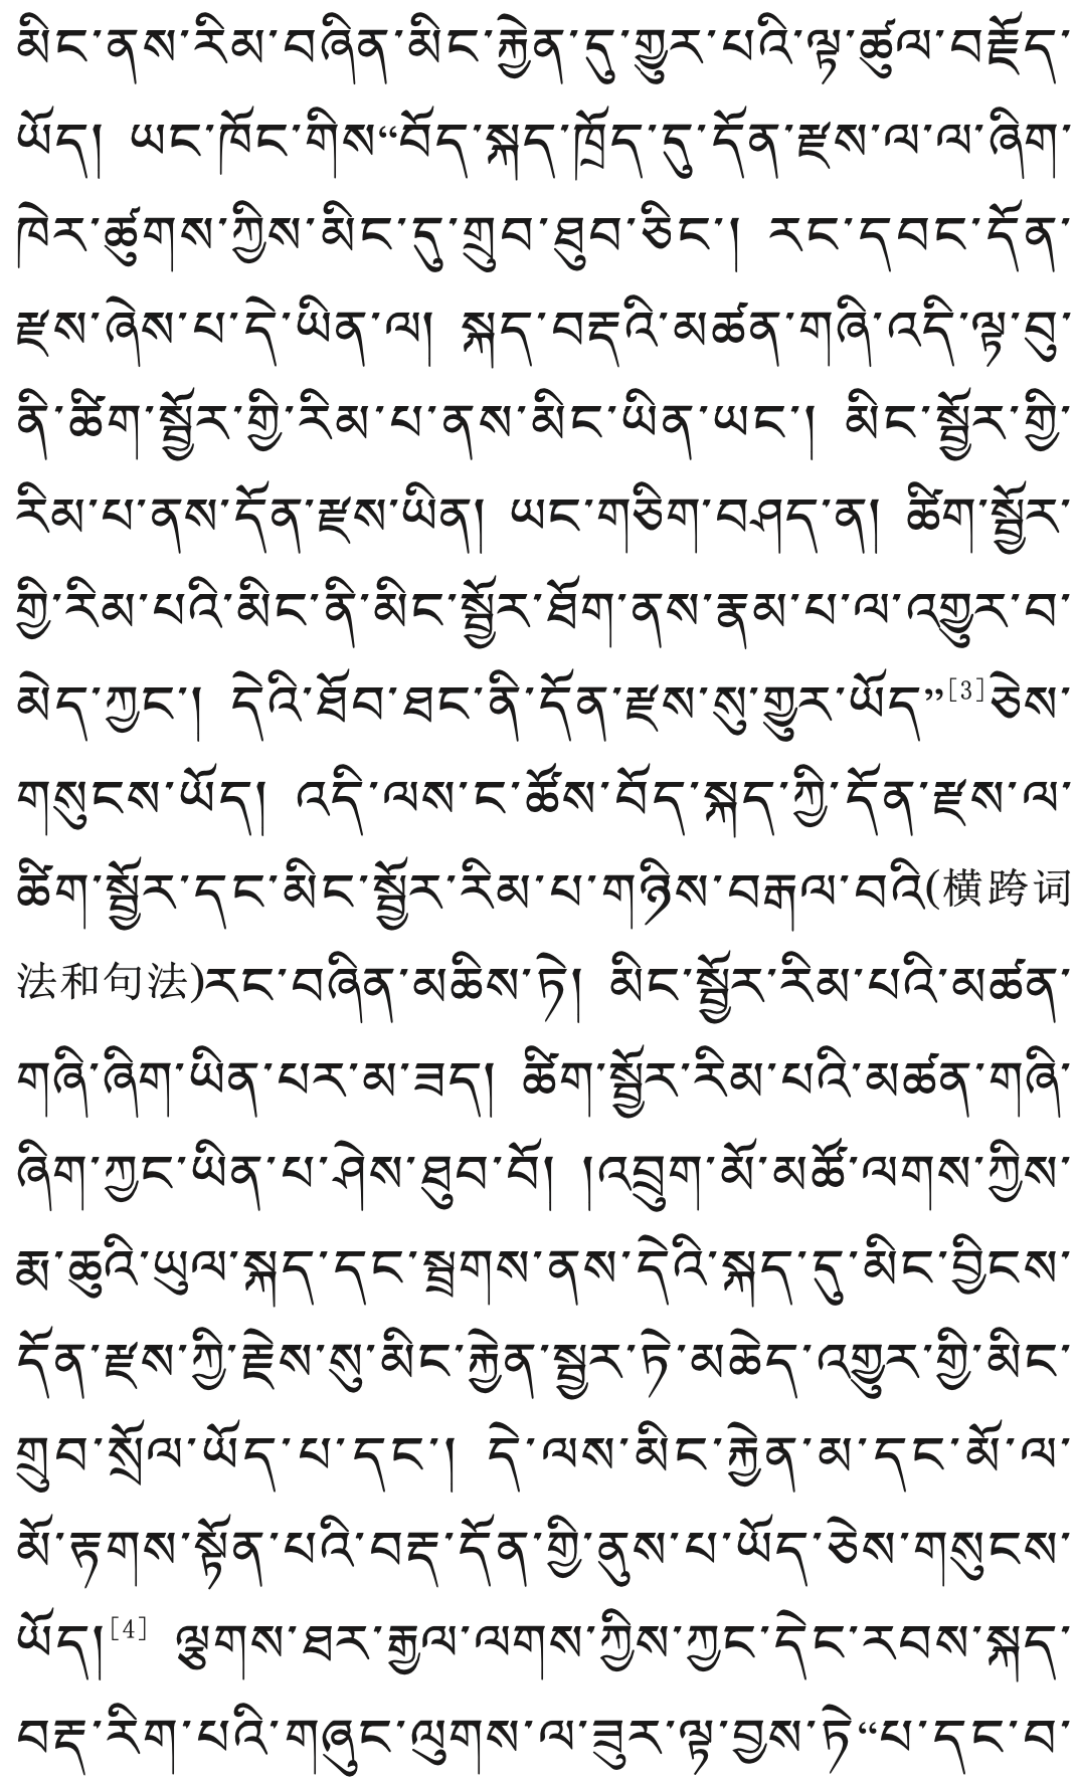 མིང་ནས་རིམ་བཞིན་མིང་རྐྱེན་དུ་གྱུར་པའི་ལྟ་ཚུལ་བརྗོད་
ཡོད། ཡང་ཁོང་གིས“བོད་སྐད་ཁྲོད་དུ་དོན་རྫས་ལ་ལ་ཞིག་
ཁེར་ཚུགས་ཀྱིས་མིང་དུ་གྲུབ་ཐུབ་ཅིང་། རང་དབང་དོན་
རྫས་ཞེས་པ་དེ་ཡིན་ལ། སྐད་བརྡའི་མཚན་གཞི་འདི་ལྟ་བུ་
ནི་ཚིག་སྦྱོར་གྱི་རིམ་པ་ནས་མིང་ཡིན་ཡང་། མིང་སྦྱོར་གྱི་
རིམ་པ་ནས་དོན་རྫས་ཡིན། ཡང་གཅིག་བཤད་ན། ཚིག་སྦྱོར་
གྱི་རིམ་པའི་མིང་ནི་མིང་སྦྱོར་ཐོག་ནས་རྣམ་པ་ལ་འགྱུར་བ་
མེད་ཀྱང་། དེའི་ཐོབ་ཐང་ནི་དོན་རྫས་སུ་གྱུར་ཡོད”[3]ཅེས་
གསུངས་ཡོད། འདི་ལས་ང་ཚོས་བོད་སྐད་ཀྱི་དོན་རྫས་ལ་
ཚིག་སྦྱོར་དང་མིང་སྦྱོར་རིམ་པ་གཉིས་བརྒལ་བའི(横跨词
法和句法)རང་བཞིན་མཆིས་ཏེ། མིང་སྦྱོར་རིམ་པའི་མཚན་
གཞི་ཞིག་ཡིན་པར་མ་ཟད། ཚིག་སྦྱོར་རིམ་པའི་མཚན་གཞི་
ཞིག་ཀྱང་ཡིན་པ་ཤེས་ཐུབ་བོ། །འབྲུག་མོ་མཚོ་ལགས་ཀྱིས་
རྨ་ཆུའི་ཡུལ་སྐད་དང་སྦྲགས་ནས་དེའི་སྐད་དུ་མིང་བྱིངས་
དོན་རྫས་ཀྱི་རྗེས་སུ་མིང་རྐྱེན་སྦྱར་ཏེ་མཆེད་འགྱུར་གྱི་མིང་
གྲུབ་སྲོལ་ཡོད་པ་དང་། དེ་ལས་མིང་རྐྱེན་མ་དང་མོ་ལ་
མོ་རྟགས་སྟོན་པའི་བརྡ་དོན་གྱི་ནུས་པ་ཡོད་ཅེས་གསུངས་
ཡོད།[4] ལྕགས་ཐར་རྒྱལ་ལགས་ཀྱིས་ཀྱང་དེང་རབས་སྐད་
བརྡ་རིག་པའི་གཞུང་ལུགས་ལ་ཟུར་ལྟ་བྱས་ཏེ“པ་དང་བ་